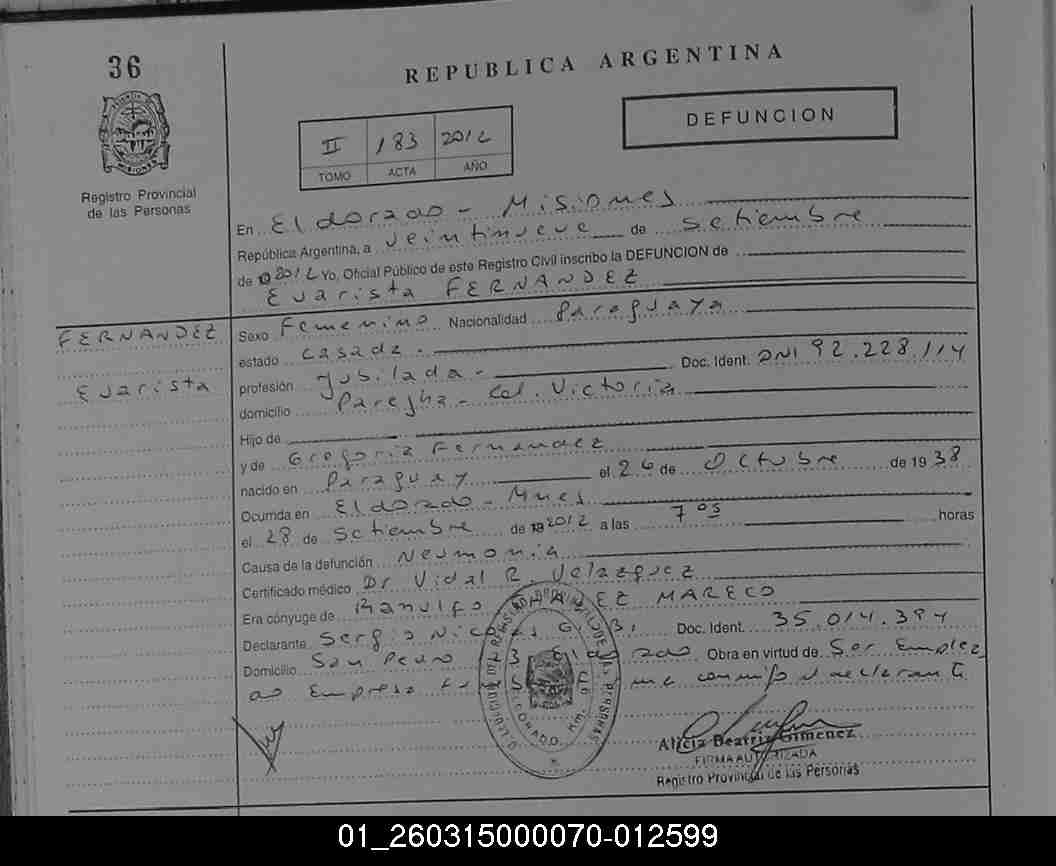 36
REPUBLICA ARGENTINA
MISIONES
Registro Provincial
de las Personas
II 183 2012
TOMO ACTA AÑO
DEFUNCION
En Eldorado - Misiones
República Argentina, a veintinueve de Setiembre
de 2012 Yo, Oficial Público de este Registro Civil inscribo la DEFUNCION de
Evarista FERNANDEZ
FERNANDEZ
Evarista
Sexo Femenino Nacionalidad Paraguaya
estado Casada -
profesión Jubilada - Doc. Ident. DNI 92.228.114
domicilio Pareha - Col. Victoria
Hijo de
y de Gregoria Fernandez
nacido en Paraguay el 26 de Octubre de 1938
Ocurrida en Eldorado - Mnes
el 28 de Setiembre de 2012 a las 7 05 horas
Causa de la defunción Neumonia
Certificado médico Dr Vidal R. Velazquez
Era cónyuge de Ranulfo MARECO
Declarante Sergio Doc. Ident. 35.014.394
Domicilio San Pedro Obra en virtud de Ser Emplea
do Empresa declarante
Alicia Beatriz Gimenez
FIRMA AUTORIZADA
Registro Provincial de las Personas
01_260315000070-012599